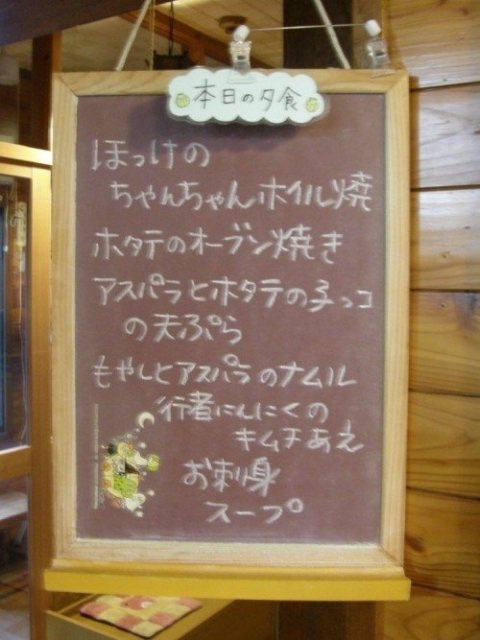 本日の夕食
ほっけの
ちゃんちゃんホイル焼
ホタテのオーブン焼き
アスパラとホタテの子っコ
の天ぷら
もやしとアスパラのナムル
行者にんにくの
キムチあえ
お刺身
スープ